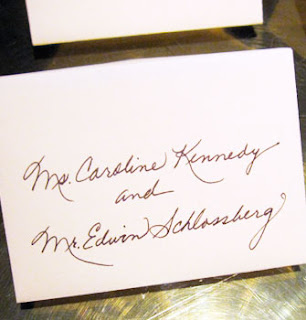 Ms. Caroline Kennedy
and
Mr. Edwin Schlossberg